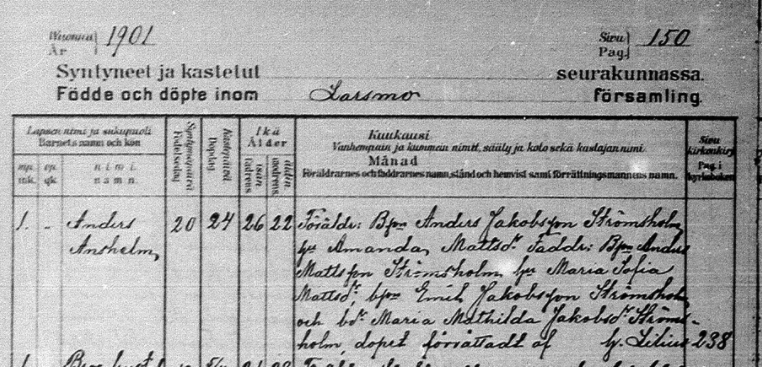 Wuonna 1901 Sivu 150
År Pag.
Syntyneet ja kastetut seurakunnassa.
Födde och döpte inom Larsmo församling.
Lapsen nimi ja sukupuoli Syntymäpäivä Kastepäivä Ikä Kuukausi Sivu
Barnets namn och kön Födelsedag Dopdag Ålder Vanhempain ja kummein nimit, sääty ja koto sekä kastajan nimi. kirkonkirj.
mp. vp. nimi. isän äidin Månad Pag. i
mk. qk. namn. fadrens modrens Föräldrarnes och faddrarnes namn, stånd och hemvist samt förrättningsmannens namn. kyrkoboken
1. - Anders 20 24 26 22 Föräldr: Bson Anders Jakobsson Strömsholm,
Anshelm, hu Amanda Mattsdr. Faddr: Bson Anders
Mattsson Strömsholm, hu Maria Sofia
Mattsdr, bson Emil Jakobsson Strömsholm
och bdr Maria Mathilda Jakobsdr Ströms-
holm, dopet förrättadt af G. Lilius 238